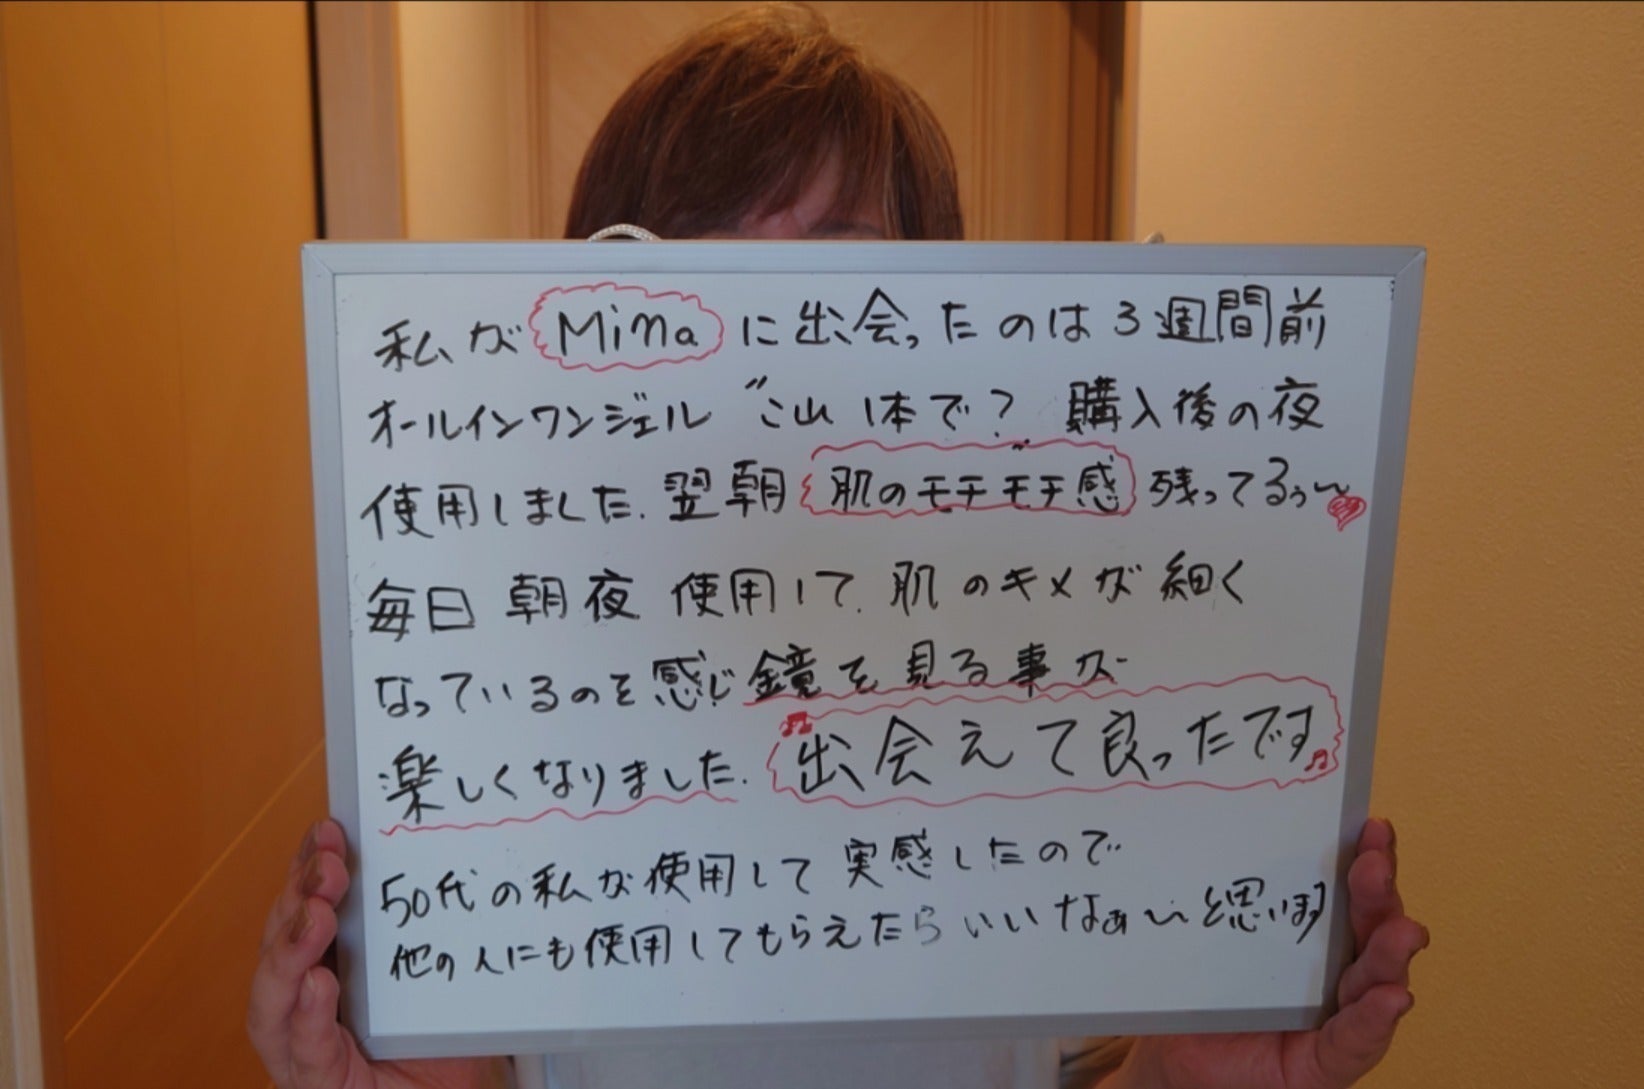 私が Mina に出会ったのは3週間前
オールインワンジェル〝こ山1本で? 購入後の夜
使用しました.翌朝 肌のモチモチ感 残ってるぅ〜♥
毎日 朝夜 使用して.肌のキメが細く
なっているのを感じ鏡を見る事が
楽しくなりました. ♫出会えて良ったです♫
50代の私が使用して実感したので
他の人にも使用してもらえたらいいなぁ〜と思います